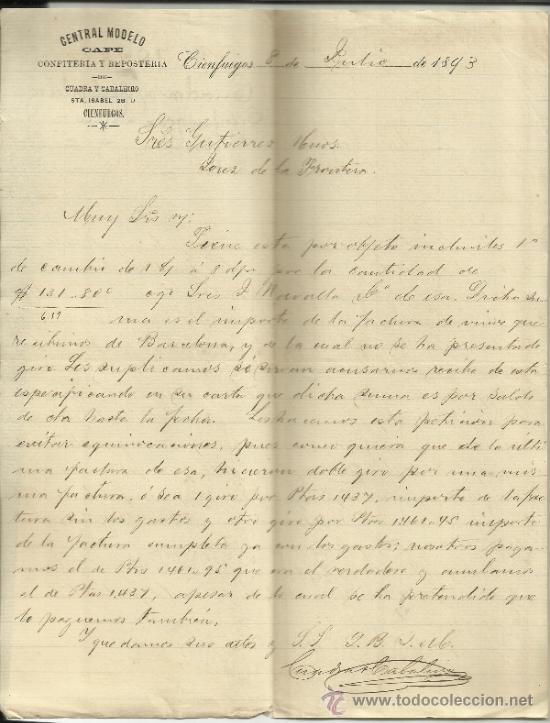 CENTRAL MODELO
CAFE
CONFITERIA Y REPOSTERIA
DE
CUADRA Y CABALEIRO
STA. ISABEL 28
CIENFUEGOS.
Cienfuegos 8 de Julio de 1893
Sres Gutierres Hnos.
Jerez de la Frontera.
Muy Srs ns:
Tiene esta por objeto incluirles 1ª
de cambio de á 8 d/v por la cantidad de
$ 131.80c Sres J. de esa. Dicha su
ma es el importe de la factura de vinos que
recibimos de Barcelona, y de la cual no se ha presentado
giro. Les suplicamos se sirvan acusarnos recibo de esta
especificando en su carta que dicha suma es por saldo
de cta hasta la fecha. Les hacemos esta peticion para
evitar equivocaciones, pues como quiera que de la ulti
ma factura de esa, hicieron doble giro por una mis
ma factura, ó sea 1 giro por Ptas 1437, importe de la fac
tura sin los gastos y otro giro por Ptas 1461.95 importe
de la factura completa ya con los gastos; nosotros paga
mos el de Pts 1461.95 que era el verdadero y anulamos
el de Ptas 1437, apesar de lo cual se ha pretendido que
lo paguemos tambien.
Y quedamos sus attos y S. S. Q. B. S. M.
Cuadra y Cabaleiro
todocoleccion.net